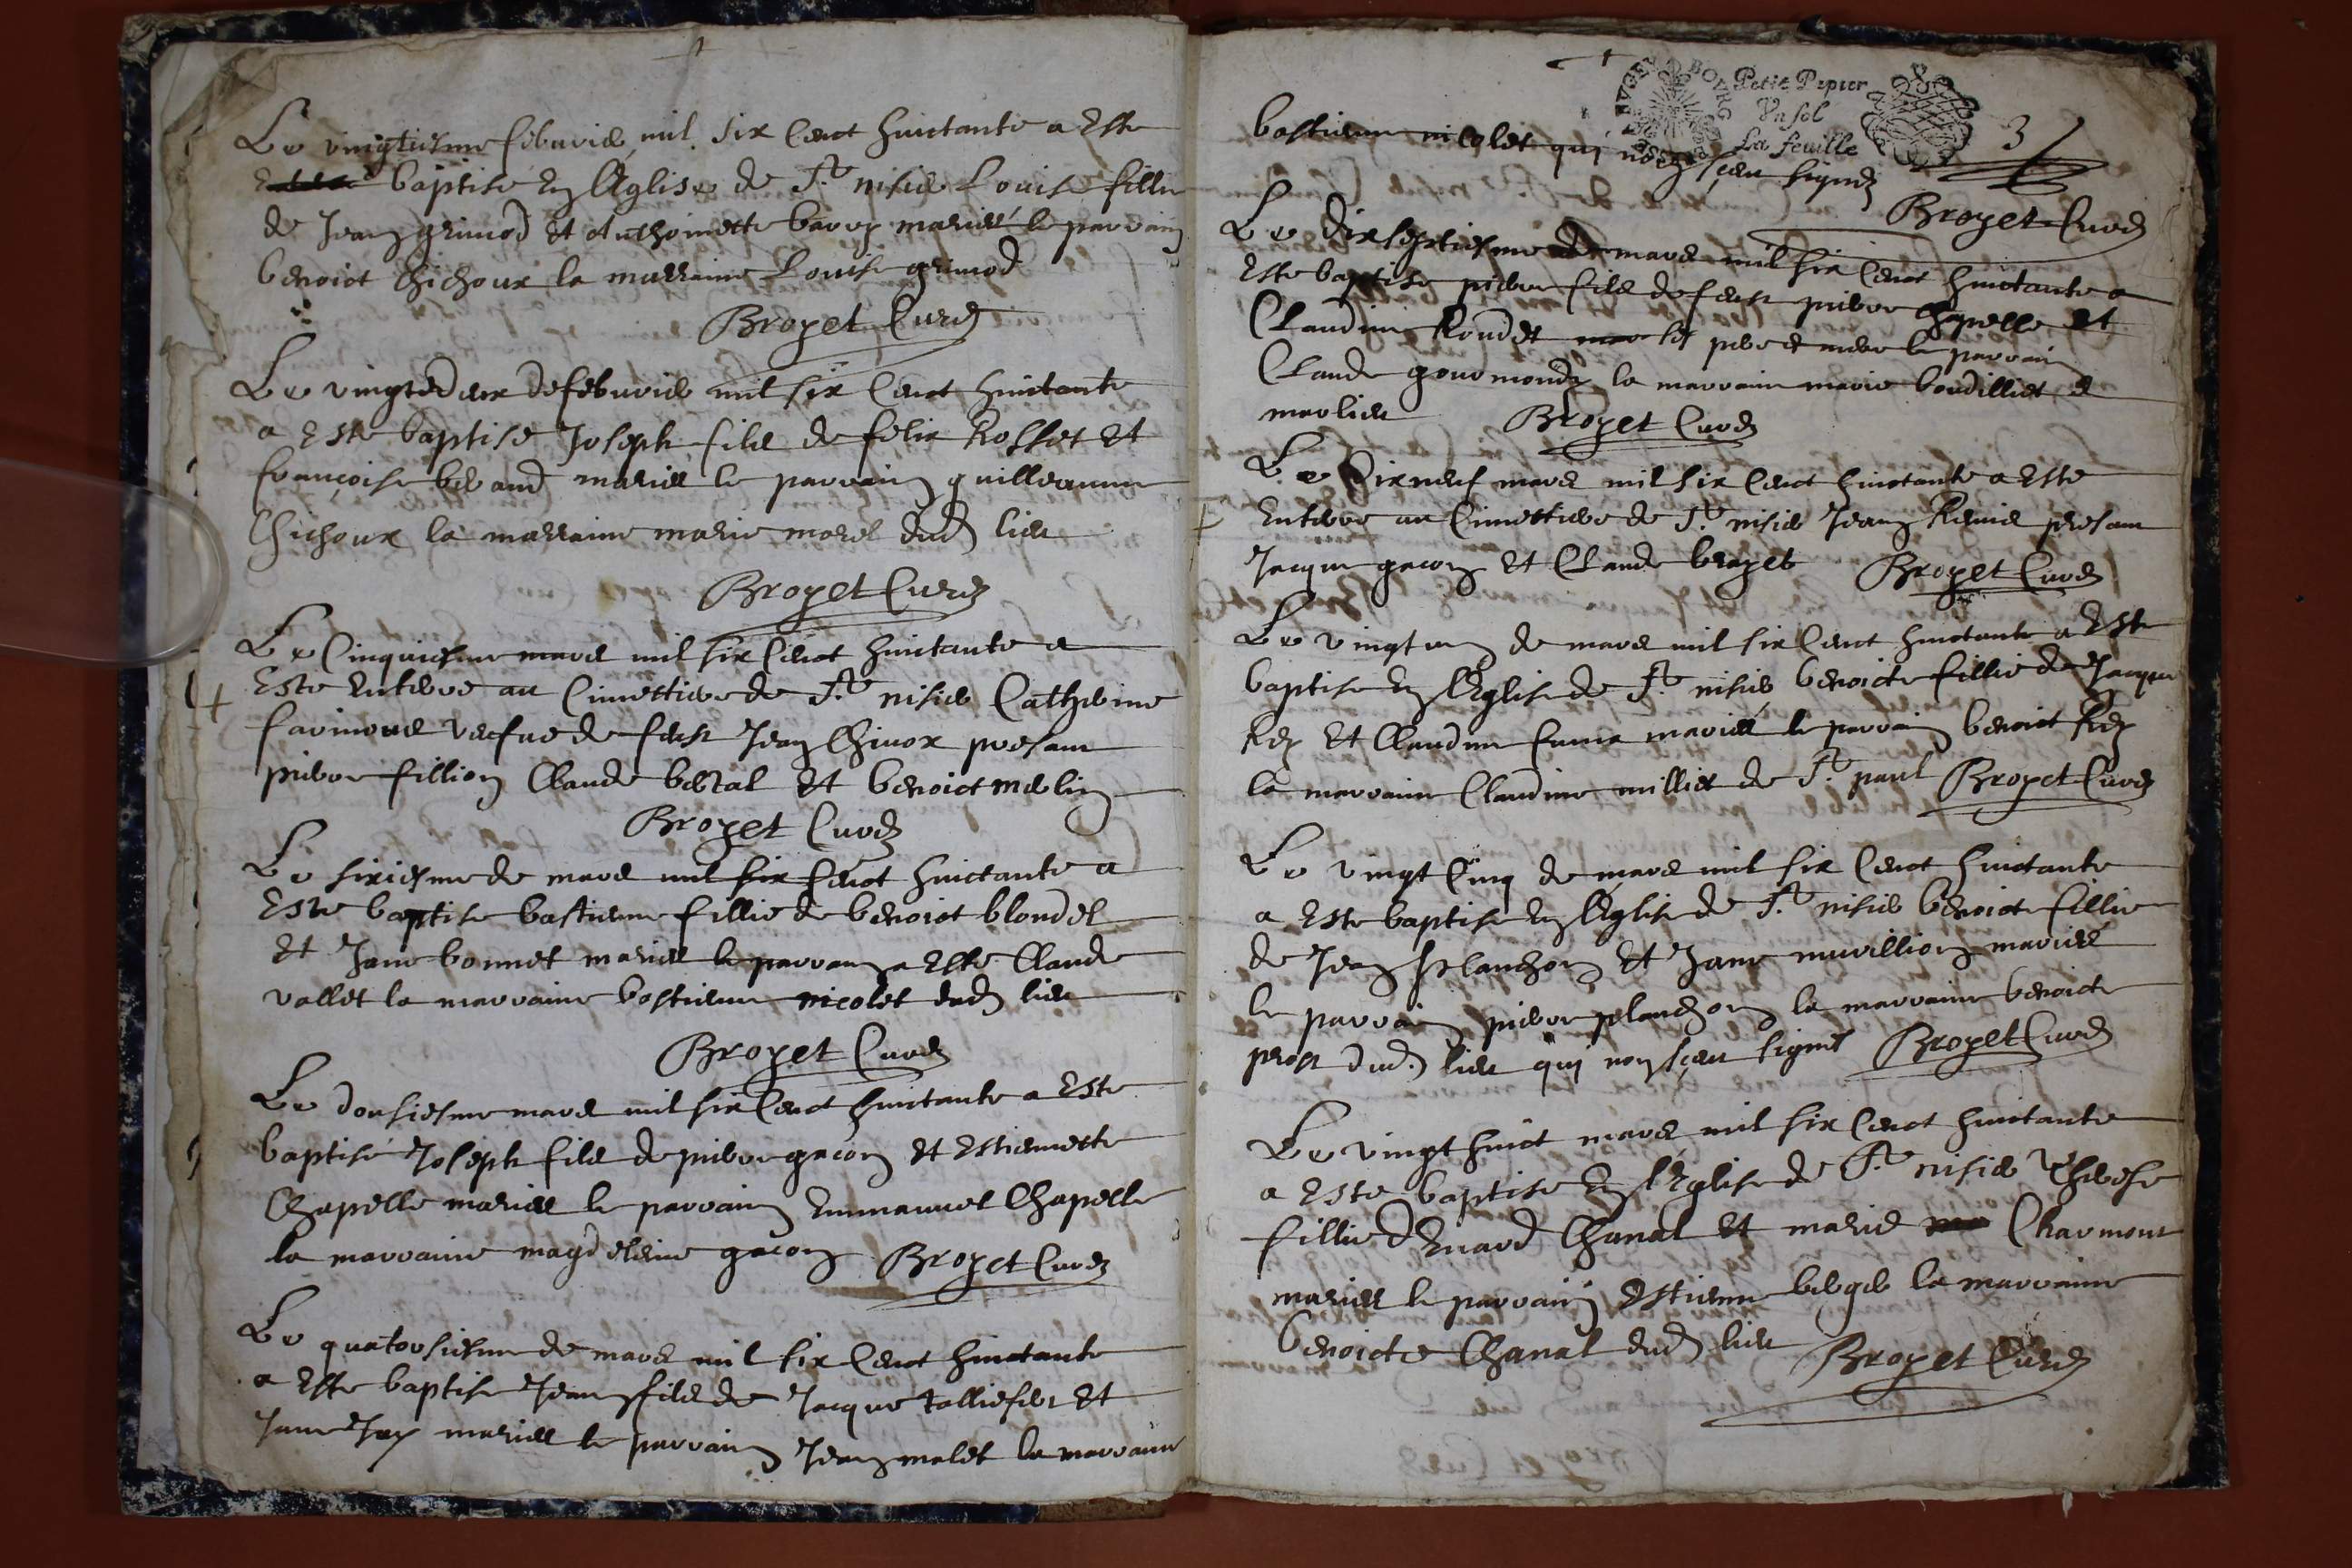 Le vingtiesme febvrier mil six Cent huictante a Este
baptise En l'Eglise de St nisier Louise fillie
de Jean grimod Et Anthoinette barry mariés le parrain
benoict Chichoux la marraine Louise grimod
Broyet Curé
Le vingtedeux de febvrier mil six Cent huictante
a Este baptise Joseph filz de felix Rosset Et
françoise beraud mariés le parrain guilleaume
Chichoux la marraine marie morel dud lieu
Broyet Curé
Le Cinquiesme mars mil six Cent huictante a
Este Enterre au Cimettiere de St nisier Catherine
vefve de feu Jean presant
pierre fillion Claude bertal Et benoict merlin
Broyet Curé
Le sixiesme de mars mil six Cent huictante a
Este baptise bastienne fillie de benoict blondel
Et Jane bonnet mariés le parrain a Este Claude
vallet la marraine bastienne nicolet dud lieu
Broyet Curé
Le dousiesme mars mil six Cent huictante a Este
baptisé Joseph filz de pierre gacon Et Estiennette
Chapelle mariés le parrain Emmanuel Chapelle
la marraine magdeleine gacon Broyet Curé
Le quatorsiesme de mars mil six Cent huictante
a Este baptise Jean filz de Jacque talliefer Et
Jane Jay mariés le parrain Jean malet la marraine
Petit Papier
Un sol
La feuille
3
bastienne nicolet qui sceu signer
Broyet Curé
Le dixseptiesme de mars mil six Cent huictante a
Este baptise pierre filz de feu pierre Chapelle Et
Claudine Rondet ses pere et mere le parrain
Claude gourmond la marraine marie bordilliet de
marlieu Broyet Curé
Le Dixneuf mars mil six Cent huictante a Este
Enterre au Cimettiere de St nisier Jean presant
Jacque gacon Et Claude broyet Broyet Curé
Le vingt un de mars mil six Cent huictante a Este
baptise En l'Eglise de St nisier benoicte fillie de Jacque
Rey Et Claudine mariés le parrain benoict Rey
la marraine Claudine milliet de St paul Broyet Curé
Le vingt Cinq de mars mil six Cent huictante
a Este baptise En l'Eglise de St nisier benoicte fillie
de Jean planchon Et Jane murillion mariés
le parrain pierre planchon la marraine benoicte
prost dud. lieu qui non sceu signer Broyet Curé
Le vingt huict mars mil six Cent huictante
a Este baptise En l'Eglise de St nisier Therese
fillie d'Enard Chanal Et marie Charmont
mariés le parrain Estienne berger la marraine
benoicte Chanal dud lieu Broyet Curé